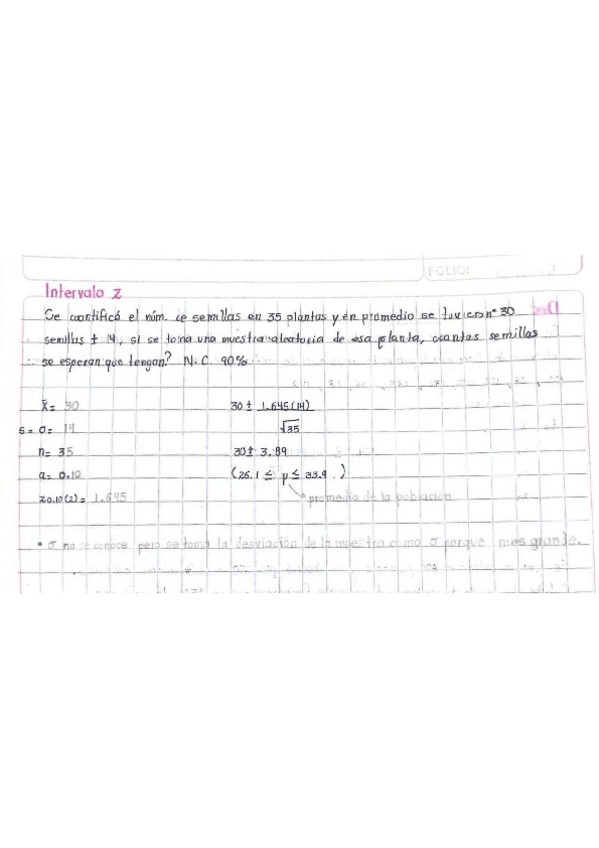 FOLIO:
Intervalo Z
Se cuantificó el núm. de semillas en 35 plantas y en promedio se tuvieron 30
semillas ± 14, si se toma una muestra aleatoria de esa planta, cuantas semillas
se esperan que tengan? N.C. 90%
x̄= 30
s = σ= 14
n= 35
α= 0.10
Z0.10(2)= 1.645
30 ± 1.645(14)
√35
30± 3.89
(26.1 ≤ μ ≤ 33.9 )
promedio de la población
• σ no se conoce pero se toma la desviación de la muestra como σ porque n es grande.